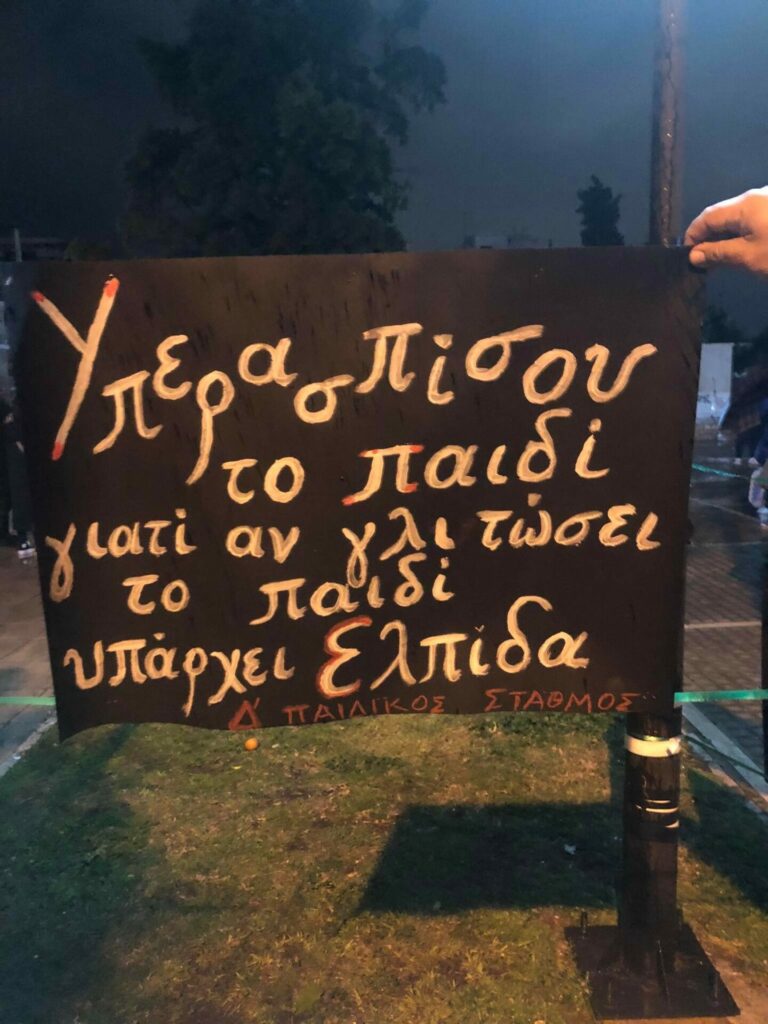 Υπερασπίσου
το παιδί
γιατί αν γλιτώσει
το παιδί
υπάρχει Ελπίδα
Δ' ΠΑΙΔΙΚΟΣ ΣΤΑΘΜΟΣ